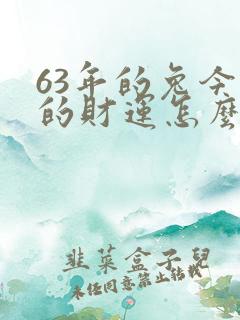 63年的兔今
的財運怎麽
韭菜盒子兒
未經同意禁止轉載